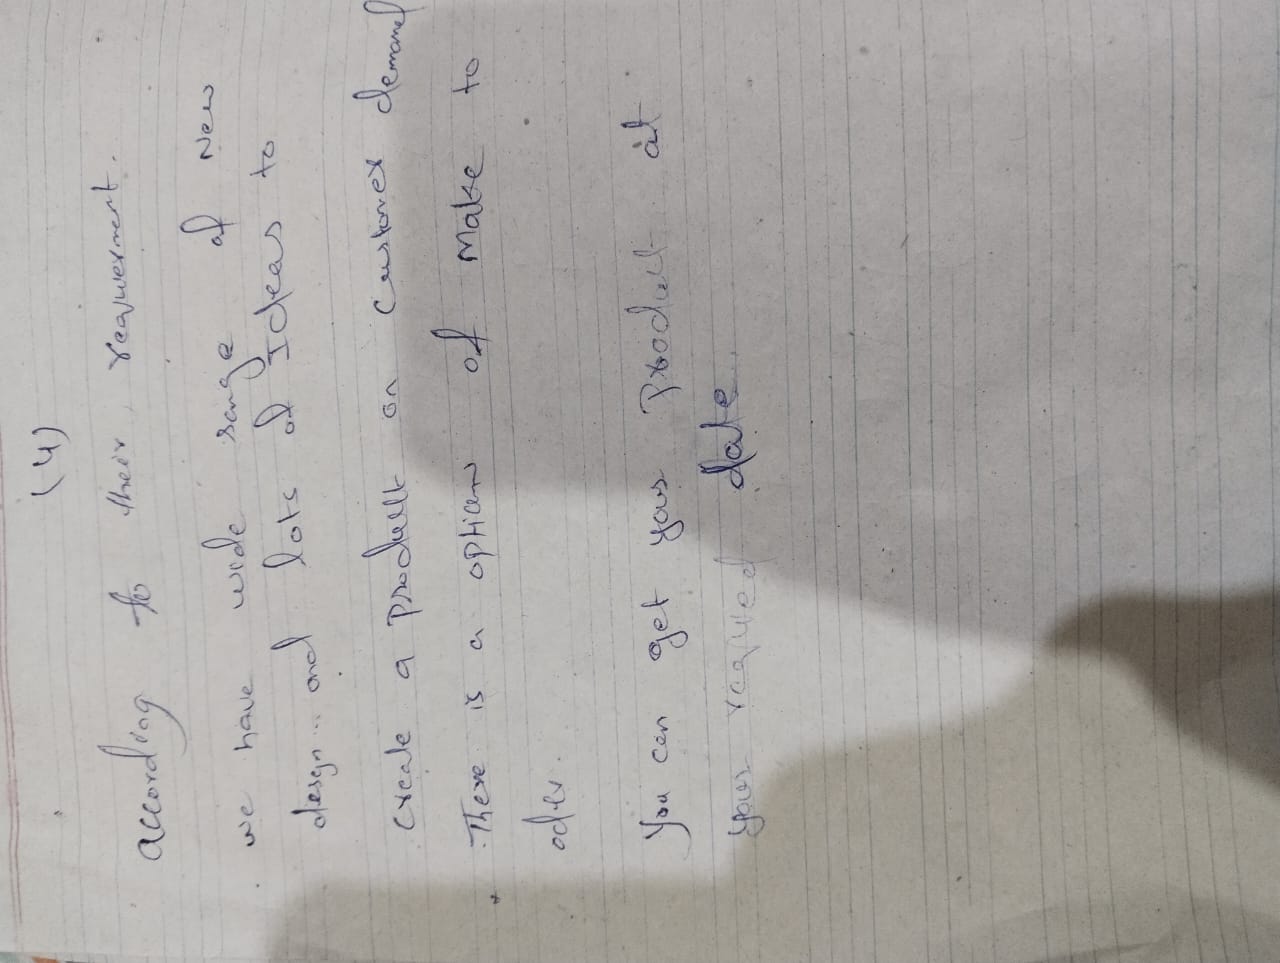 (4)
according to their requirement.
we have wide range of New
design and lots of Ideas to
create a product on customer demand
There is a option of Make to
oder.
You can get your product at
your required date.